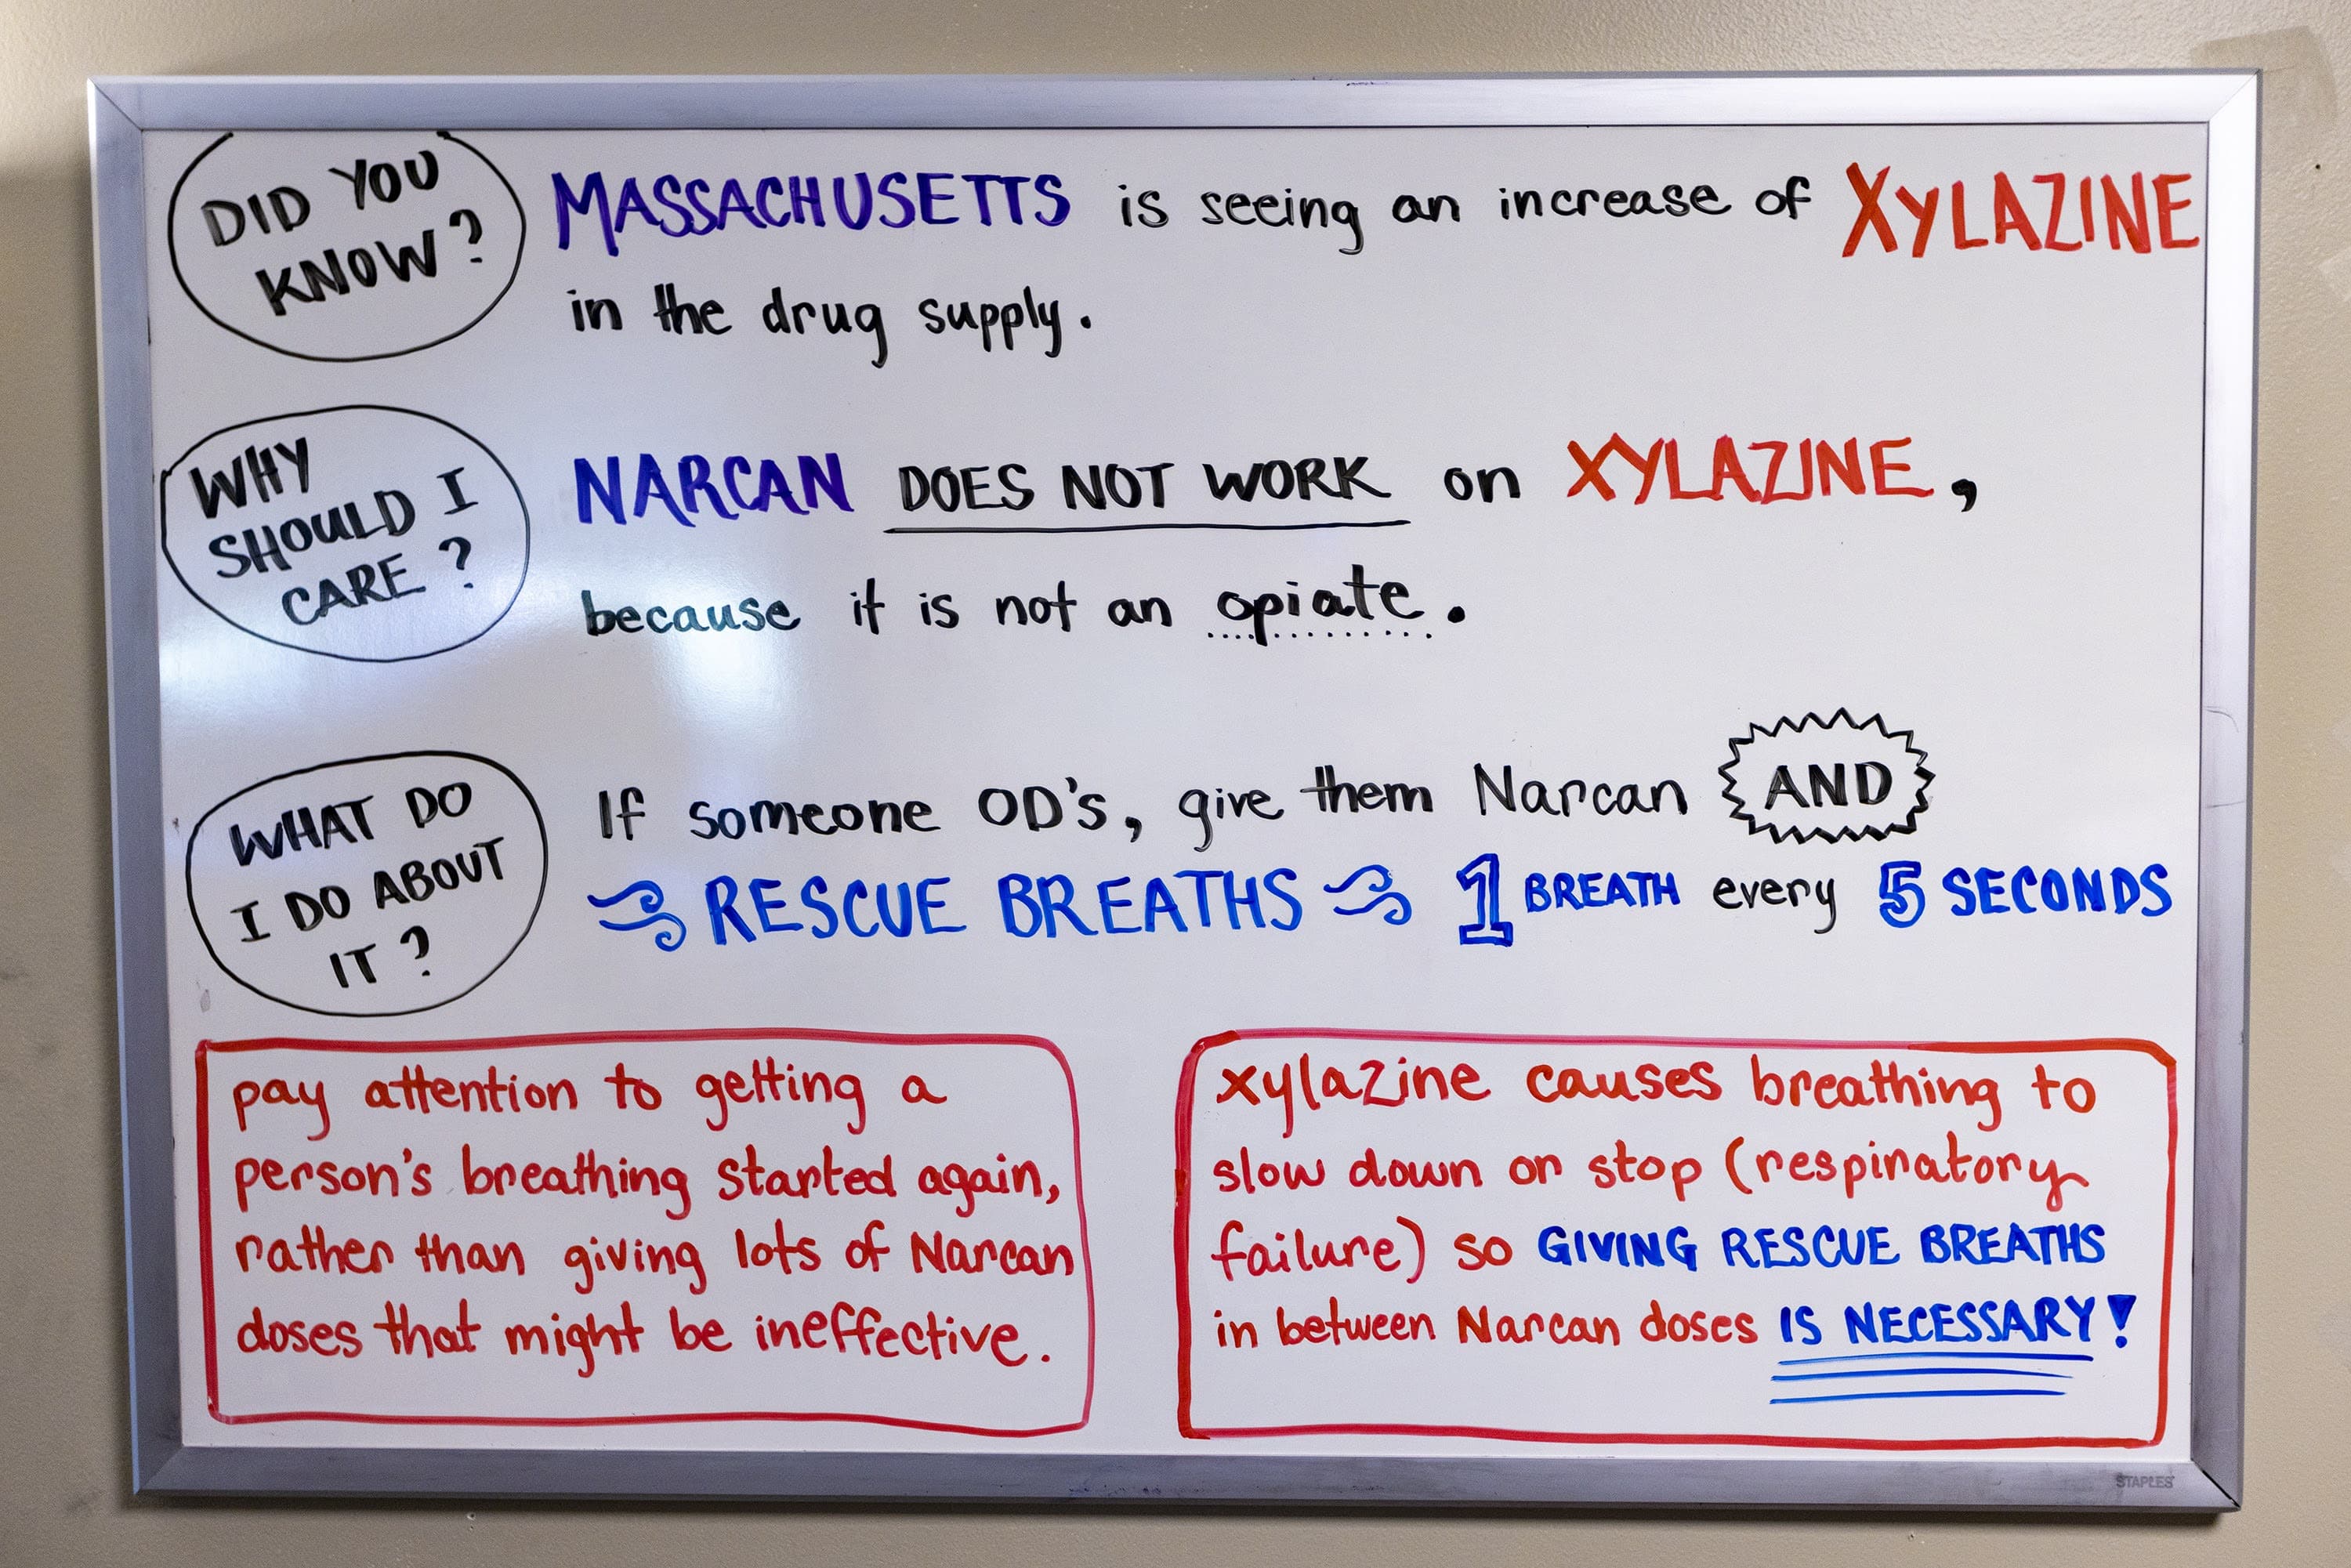 DID YOU
KNOW?
MASSACHUSETTS is seeing an increase of XYLAZINE
in the drug supply.
WHY
SHOULD I
CARE?
NARCAN DOES NOT WORK on XYLAZINE,
because it is not an opiate.
WHAT DO
I DO ABOUT
IT?
If someone OD's, give them Narcan AND
RESCUE BREATHS 1 BREATH every 5 SECONDS
pay attention to getting a
person's breathing started again,
rather than giving lots of Narcan
doses that might be ineffective.
xylazine causes breathing to
slow down or stop (respiratory
failure) so GIVING RESCUE BREATHS
in between Narcan doses IS NECESSARY!
STAPLES